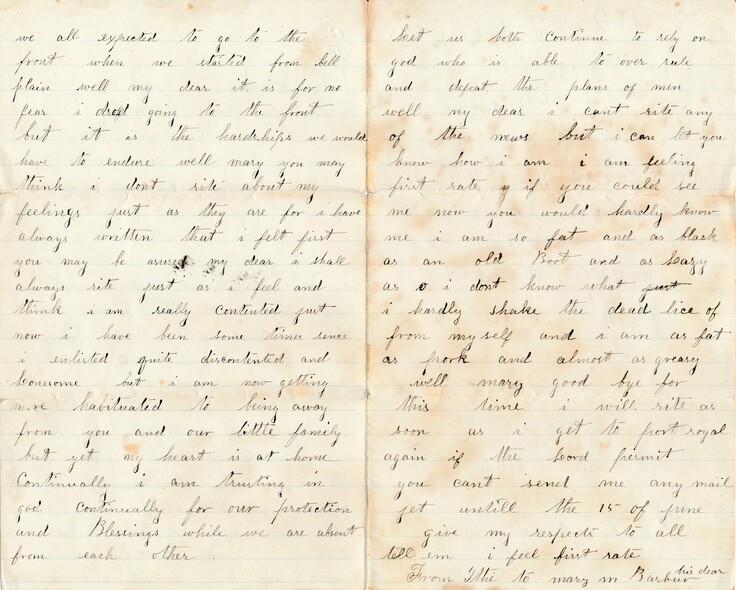 we all expected to go to the
front when we started from bell
plain well my dear it is for no
fear i dred going to the front
but it is the hardships we would
have to endure well mary you may
think i dont rite about my
feelings just as they are for i have
always written that i felt first
you may be asured my dear i shall
always rite just as i feel and
think i am really contented just
now i have been some times sence
i enlisted quite discontented and
lonesome but i am now getting
more habituated to being away
from you and our little family
but yet my heart is at home
Continually i am trusting in
god continually for our protection
and Blessings while we are absent
from each other
Let us both continue to rely on
god who is able to over rule
and defeat the plans of men
well my dear i cant rite any
of the news but i can let you
know how i am i am feeling
first rate if you could see
me now you would hardly know
me i am so fat and as black
as an old Boot and as Lazy
as i dont know what just
i hardly shake the dead lice of
from my self and i am as fat
as pork and almost as greasy
well mary good bye for
this time i will rite as
soon as i get to port royal
again if the Lord permit
you cant send me any mail
yet untill the 15 of june
give my respects to all
tell em i feel first rate
his dear
From to mary m Barbur